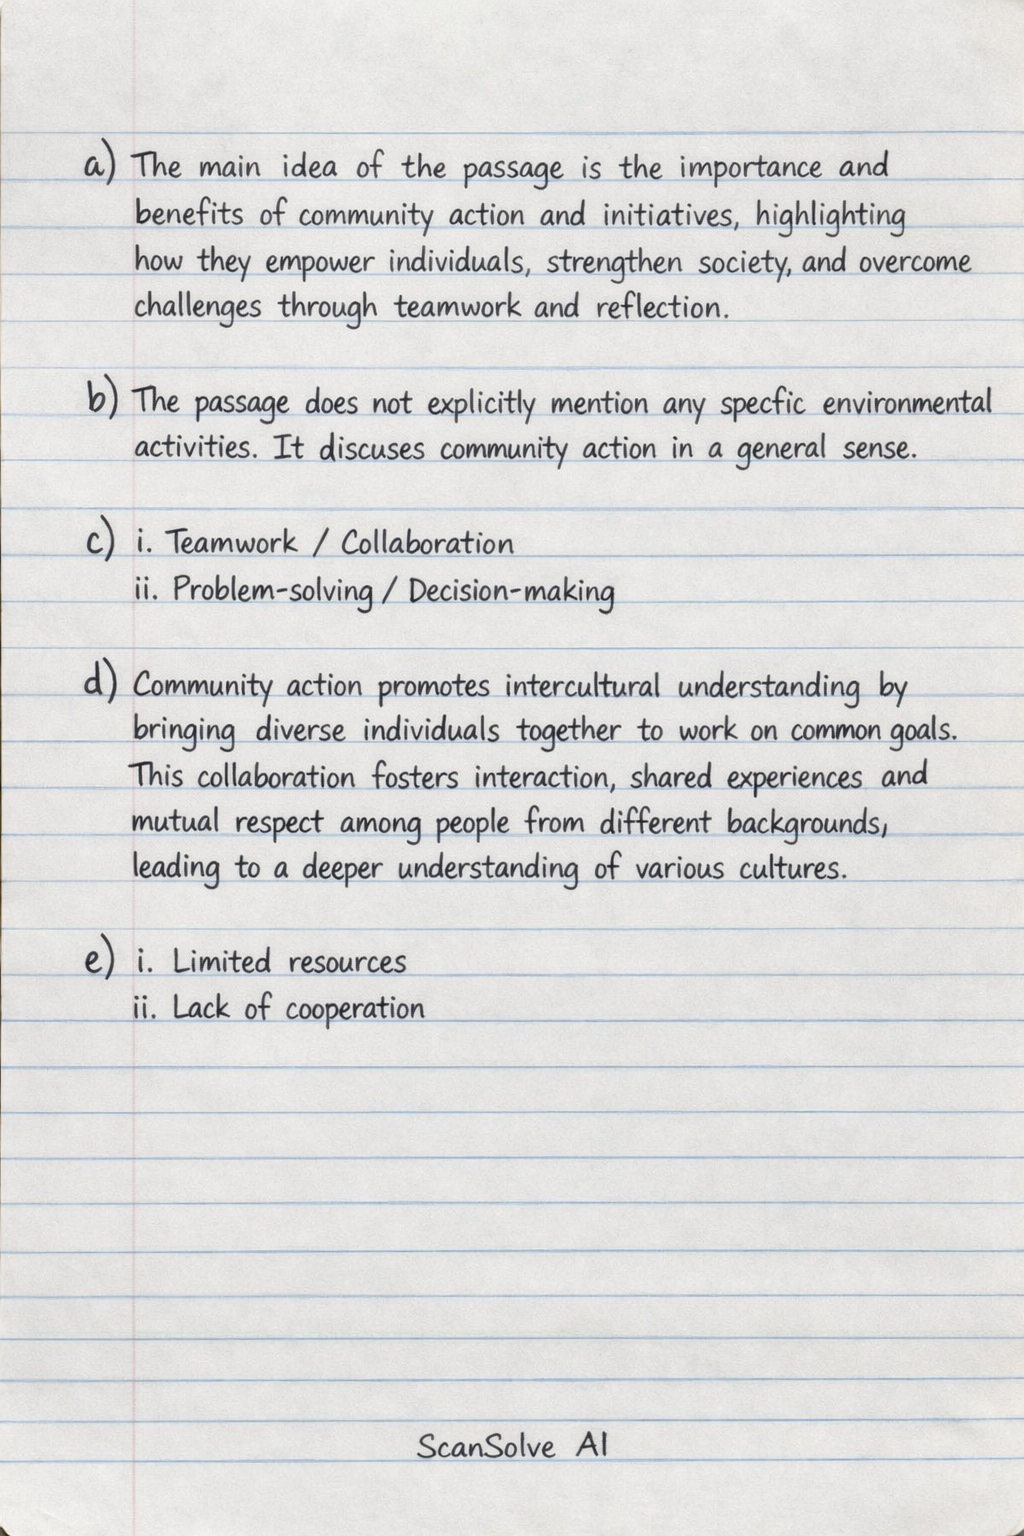 a) The main idea of the passage is the importance and
benefits of community action and initiatives, highlighting
how they empower individuals, strengthen society, and overcome
challenges through teamwork and reflection.
b) The passage does not explicitly mention any specfic environmental
activities. It discusses community action in a general sense.
c) i. Teamwork / Collaboration
ii. Problem-solving / Decision-making
d) Community action promotes intercultural understanding by
bringing diverse individuals together to work on common goals.
This collaboration fosters interaction, shared experiences and
mutual respect among people from different backgrounds,
leading to a deeper understanding of various cultures.
e) i. Limited resources
ii. Lack of cooperation
ScanSolve AI